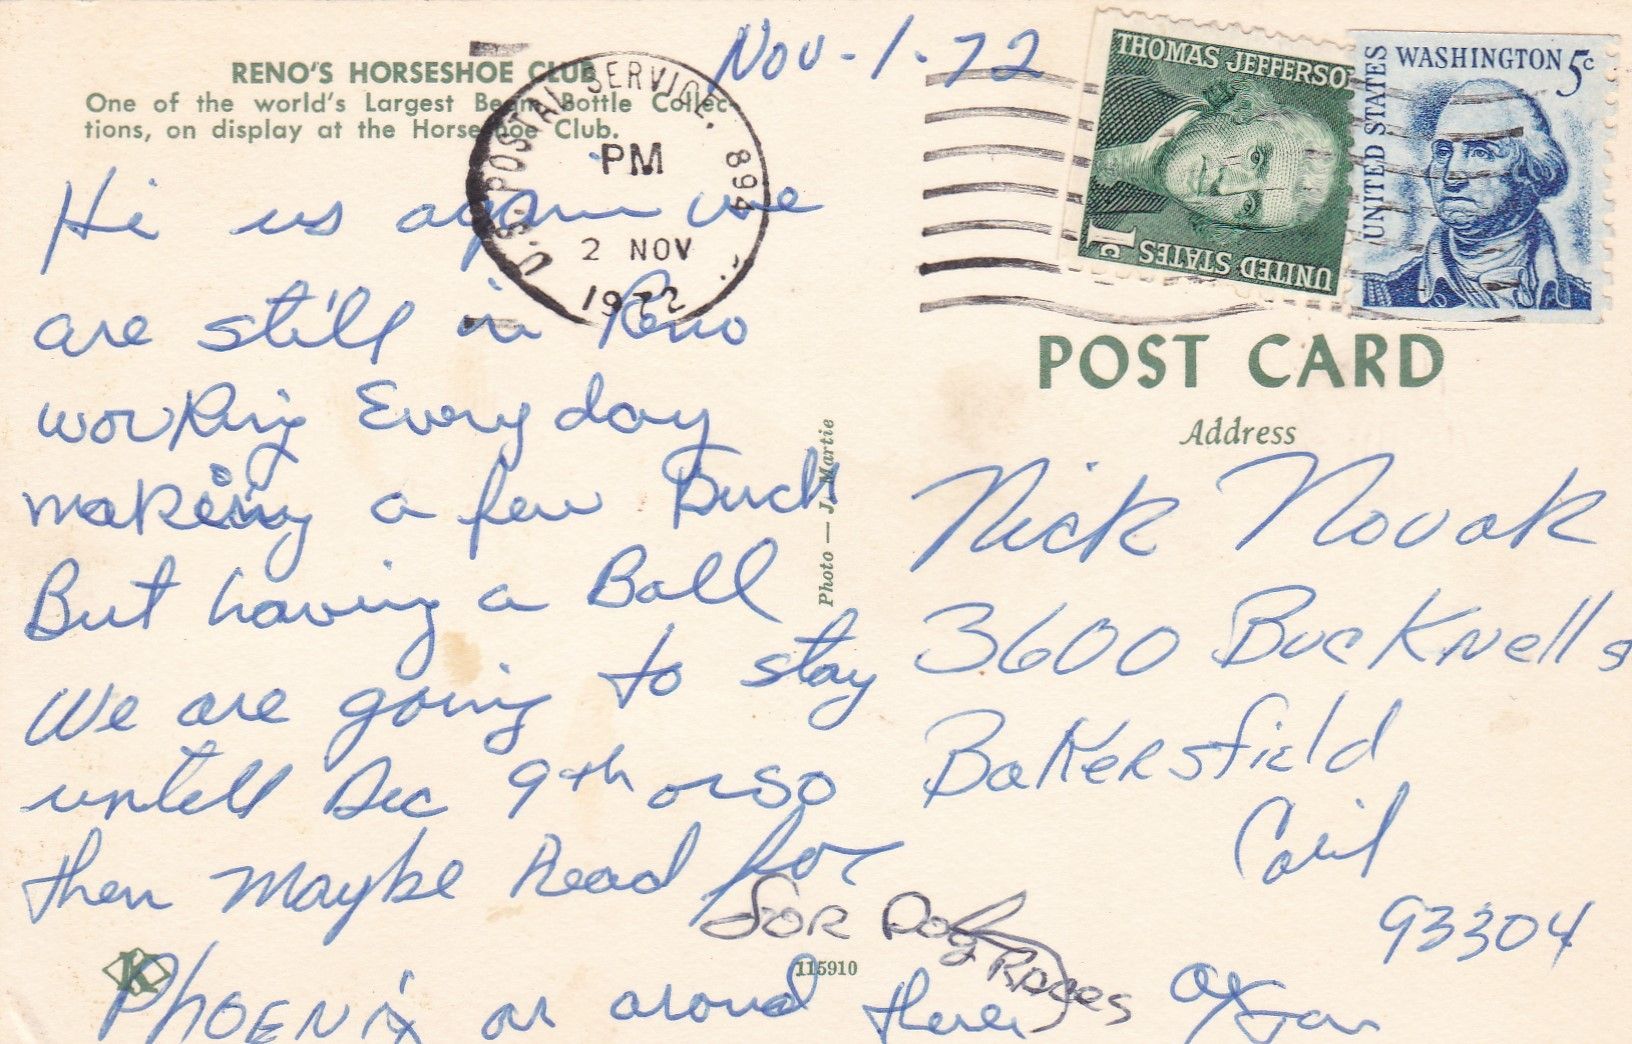 Nov-1-72
RENO'S HORSESHOE CLUB
One of the world's Largest Beam Bottle Collec-
tions, on display at the Horseshoe Club.
U.S. POSTAL SERVICE. 894
PM
2 NOV
1972
THOMAS JEFFERSO
1c UNITED STATES
UNITED STATES
WASHINGTON 5c
Hi us again we
are still in Reno
working Every day
making a few Buck
But having a Ball
We are going to stay
untell Dec 9th or so
then Maybe Head for
PHOENIX or around there
FOR Dog
RACES
Photo — J. Martie
115910
K
POST CARD
Address
Nick Novak
3600 BucKNells
BaKersfield
Calif
93304